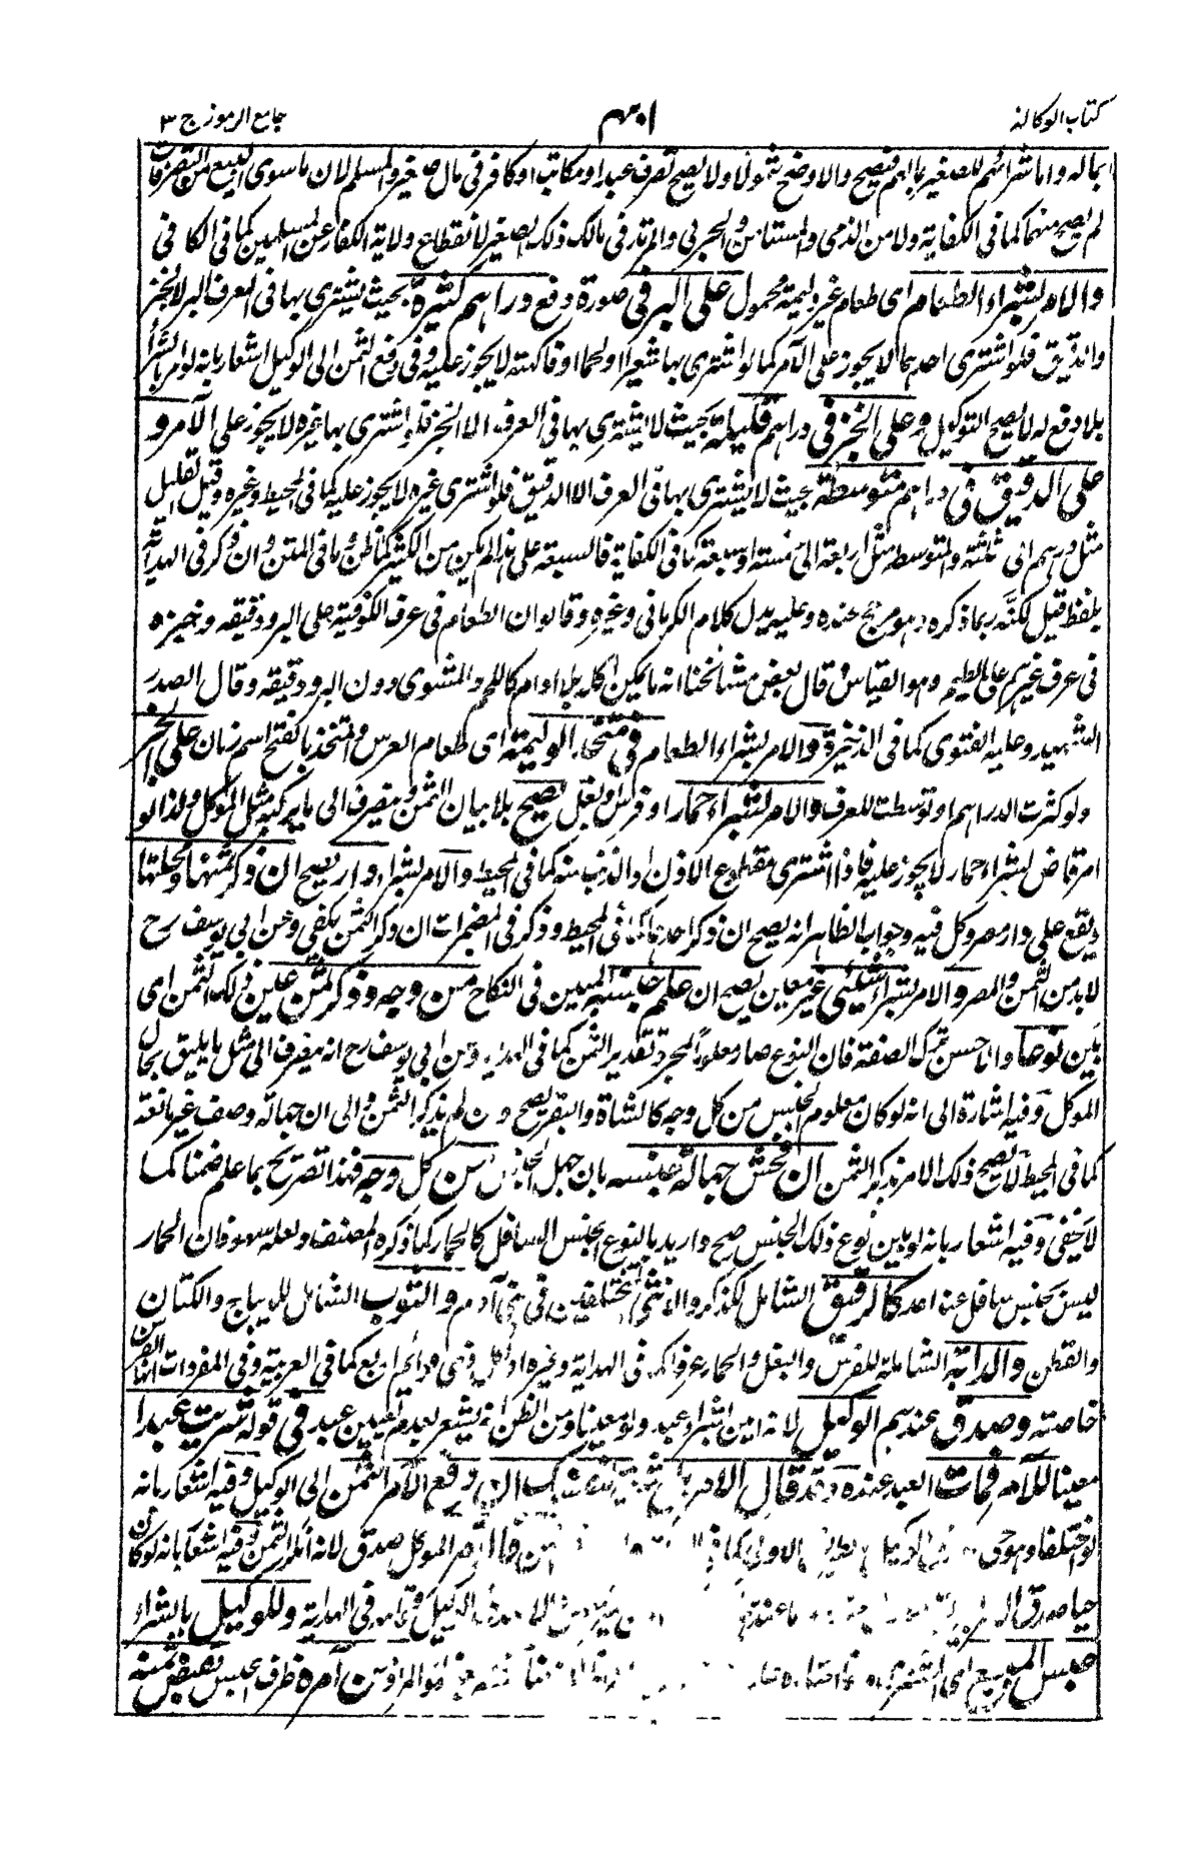 كتاب الوكالة
جامع الرموز ج ٣
بماله واما شرائهم للصغير بمالهم فيصح والاوضح شمولا ولا يصح تصرف عبد او مكاتب او كافر فى مال صغير مسلم لان ما سوى البيع من التصرفات
لم يصح منهما كما فى الكفاية ولا من الذمى والمستامن والحربى والمرتد فى مالك ذلك الصغير لانقطاع ولاية الكفار عن المسلمين كما فى الكافى
والامر بشراء الطعام اى طعام غير وليمة محمول على البر فى صورة دفع دراهم كثيرة بحيث يشترى بها فى العرف البر لا الخبز
والدقيق فلو اشترى احدهما لا يجوز على الآمر كما لو اشترى بها شعيرا او لحما او فاكهة لا يجوز عليه وفى دفع الثمن الى الوكيل اشعار بانه لو امر بالشراء
بلا دفع له لا يصح التوكيل وعلى الخبز فى دراهم قليلة بحيث لا يشترى بها فى العرف الا الخبز فلو اشترى بها غيره لا يجوز على الآمر و
على الدقيق فى دراهم متوسطة بحيث لا يشترى بها فى العرف الا الدقيق فلو اشترى غيره لا يجوز عليه كما فى المحيط وغيره وقيل القليل
مثل درهم الى ثلثة والمتوسط مثل اربعة الى خمسة او سبعة كما فى الكفاية فالسبعة على هذا لم يكن من الكثير كما ظن وما فى المتن وان ذكر فى الهداية
بلفظ قيل لكنه ربما ذكره وهو مرجح عنده وعليه يدل كلام الكرمانى وغيره وقالوا ان الطعام فى عرف الكوفية على البر ودقيقه وخبزه
فى عرف غيرهم على المطعم وهو القياس وقال بعض مشائخنا انه ما يمكن اكله بلا ادام كاللحم والمشوى دون البر ودقيقه وقال الصدر
الشهيد وعليه الفتوى كما فى الذخيرة والامر بشراء الطعام فى متخذ الوليمة اى طعام العرس والمتخذ بالفتح اسم زمان على الخبز
ولو كثرت الدراهم او توسطت للعرف والامر بشراء حمار او فرس او بغل يصح بلا بيان الثمن وينصرف الى ما يركبه مثل الموكل ولذا لو
امر قاض بشراء حمار لا يجوز عليه فاذا اشترى مقطوع الاذن او الذنب منه كما فى المحيط والامر بشراء دار يصح ان ذكر ثمنها ومحلتها
ويقع على دار مصر وكل فيه وجواب الظاهر انه يصح ان ذكر احدهما كما فى المحيط وذكر فى المضمرات ان ذكر الثمن يكفى وعن ابى يوسف رح
لا بد من الثمن والمصر والامر بشراء شيئ غير معين يصح ان علم جنسه المبين فى النكاح من وجه وذكر ثمن عين ذلك الثمن اى
بين نوعا وانما حسن ترك الصفة فان النوع صار معلوما لمجرد تقدير الثمن كما فى الهداية وعن ابى يوسف رح انه ينصرف الى مثل ما يليق بحال
الموكل وفيه اشارة الى انه لو كان معلوم الجنس من كل وجه كالشاة والبقر يصح وان لم يذكر الثمن والى ان جهالة وصف غير مانعة
كما فى المحيط لا يصح ذلك الامر بذكر الثمن ان فحش جهالة جنسه بان جهل الجنس من كل وجه فهذا تصريح بما علم ضمنا كما
لا يخفى وفيه اشعار بانه لو بين نوع ذلك الجنس صح واريد بالنوع الجنس السافل كالحمار كما ذكره المصنف ولعله سهو فان الحمار
ليس بجنس سافل عند احد كالرقيق الشامل للذكر والانثى المختلفين فى بنى آدم والثوب الشامل للديباج والكتان
والقطن والدابة الشاملة للفرس والبغل والحمار عرفا كما فى الهداية وغيره او لكل ذى قوائم اربع كما فى العربية وفى المفردات انها الفرس
خاصة وصدق عندهم الوكيل لانه امين بشراء عبد ولو معينا ومن الظن انه يشعر بعدم تعيين عبد فى قوله شريت عبدا
معينا للآمر فمات العبد عنده وقد قال الآمر بل شريت لنفسك ان دفع الآمر الثمن الى الوكيل وفيه اشعار بانه
لو اختلفا وهو حى صدق لانه انكر الثمن وفيه اشعار بانه لو كان
حيا صدق فى الهداية وللوكيل بالشراء
حبس المبيع اى المشترى من آمره ظرف حبس لقبض ثمنه